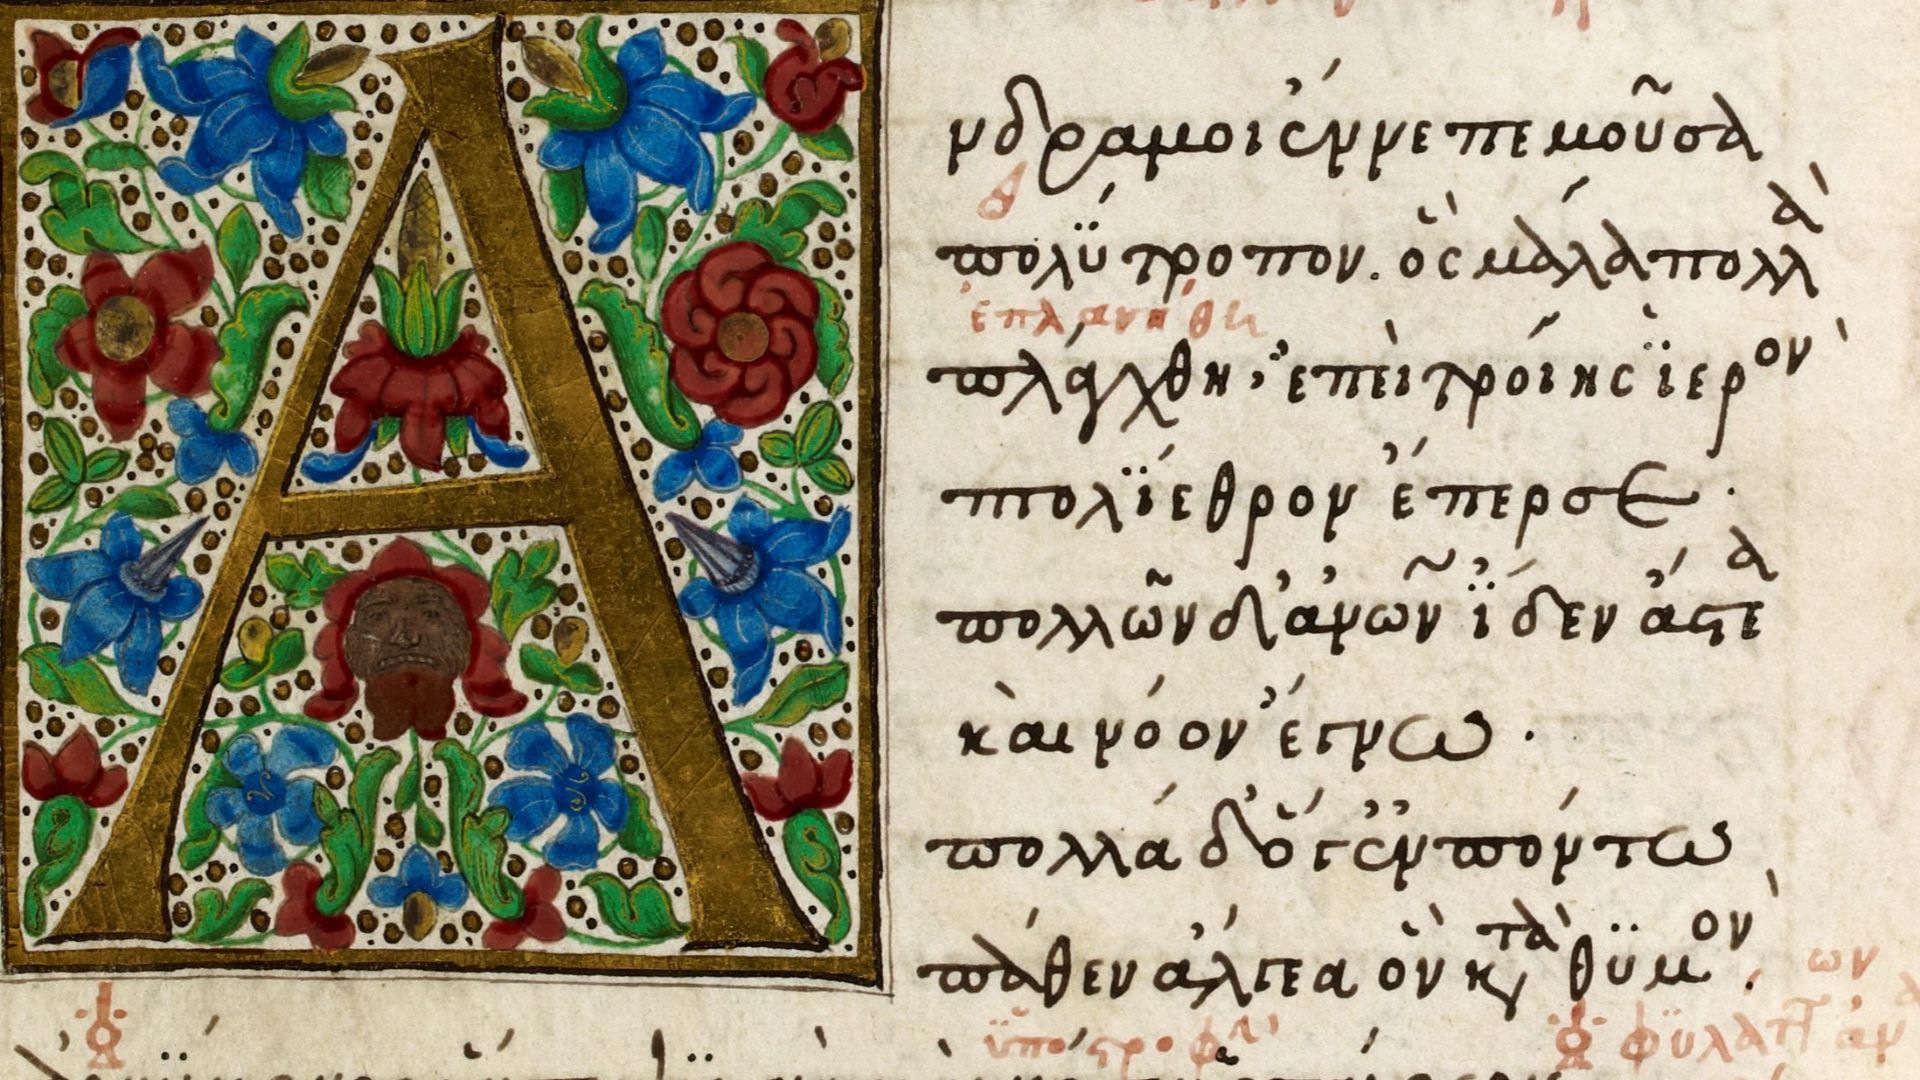 Α
νδρα μοι ἔννεπε μοῦσα
πολύτροπον. ὃς μάλα πολλὰ
ἐπλανήθη
πλάγχθη· ἐπεὶ τροίης ἱερὸν
πτολίεθρον ἔπερσε.
πολλῶν δ' ἀνθρώπων ἴδεν ἄστεα
καὶ νόον ἔγνω.
πολλὰ δ' ὅγ' ἐν πόντω
πάθεν ἄλγεα ὃν κατὰ θυμὸν.